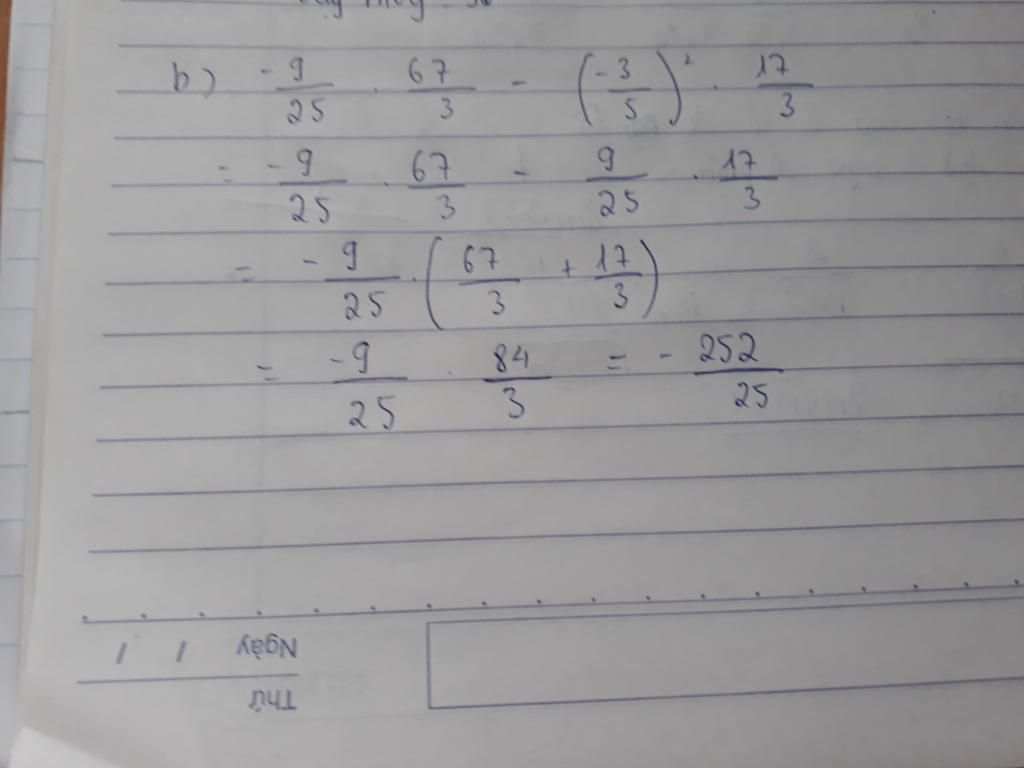 b) -9/25 . 67/3 - (-3/5)² . 17/3
= -9/25 . 67/3 - 9/25 . 17/3
= -9/25 . (67/3 + 17/3)
= -9/25 . 84/3 = -252/25
Ngày / /
Thứ